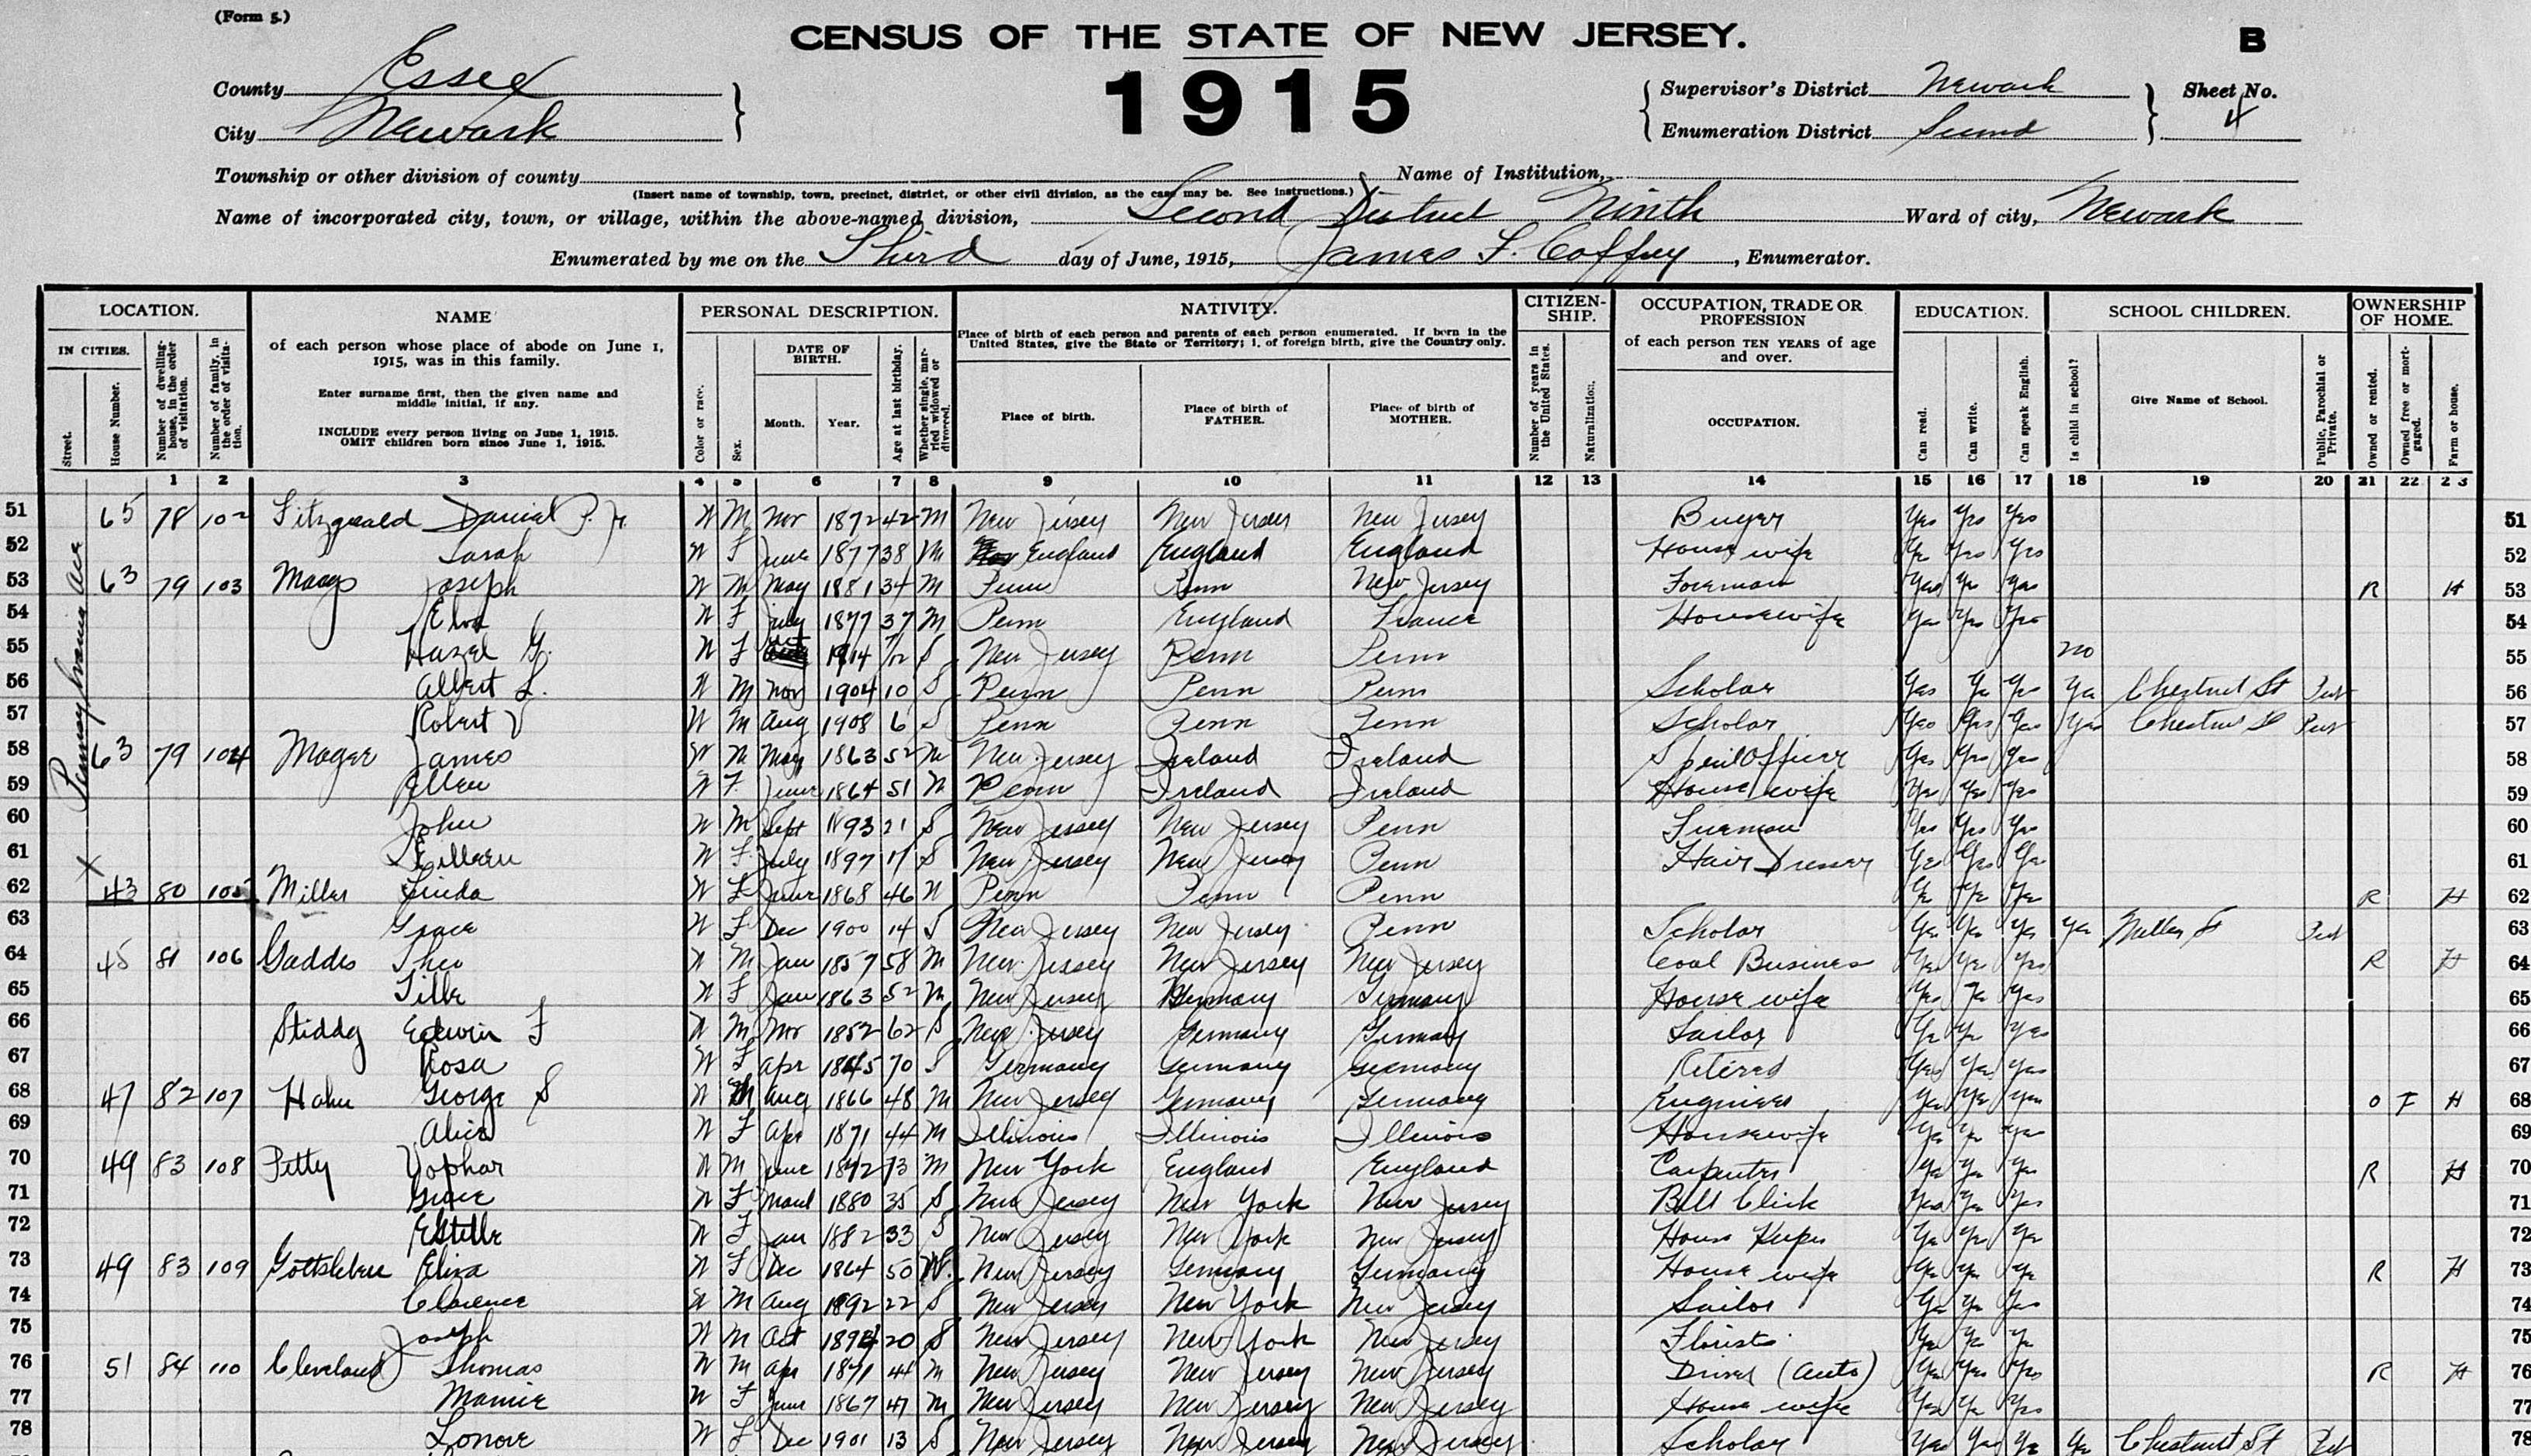 (Form 5.)
CENSUS OF THE STATE OF NEW JERSEY.
B
1915
County Essex
City Newark
Supervisor's District Newark
Enumeration District Second
Sheet No.
4
Township or other division of county
Name of Institution,
(Insert name of township, town, precinct, district, or other civil division, as the case may be. See instructions.)
Name of incorporated city, town, or village, within the above-named division, Second District Ninth Ward of city, Newark
Enumerated by me on the Third day of June, 1915, James F. Coffey, Enumerator.
LOCATION.
IN CITIES.
Street.
House Number.
Number of dwelling-house, in the order of visitation.
Number of family, in the order of visitation.
NAME
of each person whose place of abode on June 1, 1915, was in this family.
Enter surname first, then the given name and middle initial, if any.
INCLUDE every person living on June 1, 1915.
OMIT children born since June 1, 1915.
PERSONAL DESCRIPTION.
Color or race.
Sex.
DATE OF BIRTH.
Month.
Year.
Age at last birthday.
Whether single, married widowed or divorced.
NATIVITY.
Place of birth of each person and parents of each person enumerated. If born in the United States, give the State or Territory; 1. of foreign birth, give the Country only.
Place of birth.
Place of birth of FATHER.
Place of birth of MOTHER.
CITIZEN-SHIP.
Number of years in the United States.
Naturalization.
OCCUPATION, TRADE OR PROFESSION
of each person TEN YEARS of age and over.
OCCUPATION.
EDUCATION.
Can read.
Can write.
Can speak English.
SCHOOL CHILDREN.
Is child in school?
Give Name of School.
Public, Parochial or Private.
OWNERSHIP OF HOME.
Owned or rented.
Owned free or mortgaged.
Farm or house.
1 2 3 4 5 6 7 8 9 10 11 12 13 14 15 16 17 18 19 20 21 22 23
Pennsylvania Ave
51 65 78 102 Fitzgerald Daniel P. Jr. W M Nov 1872 42 M New Jersey New Jersey New Jersey Buyer Yes Yes Yes 51
52 Sarah W F June 1877 38 M England England England Housewife Ye Yes Yes 52
53 63 79 103 Joseph W M May 1881 34 M Penn Penn New Jersey Foreman Yes Ye Yes R H 53
54 W F July 1877 37 M Penn England France Housewife Yes Yes Yes 54
55 Hazel G. W F 1914 7/12 S New Jersey Penn Penn no 55
56 Albert L. W M Nov 1904 10 S Penn Penn Penn Scholar Yes Ye Ye Ye Chestnut St Pub 56
57 Robert V W M Aug 1908 6 S Penn Penn Penn Scholar Yes Yes Yes Yes Chestnut St Pub 57
58 63 79 104 Mager James W M May 1863 52 M New Jersey Ireland Ireland Officer Yes Yes Yes 58
59 Ellen W F June 1864 51 M Penn Ireland Ireland Housewife Yes Yes Yes 59
60 John W M Sept 1893 21 S New Jersey New Jersey Penn Yes Yes Ye 60
61 X Lilleen W F July 1897 17 S New Jersey New Jersey Penn Hair Dresser Ye Yes Ye 61
62 43 80 105 Miller Linda W F June 1868 46 Penn Penn Penn Ye Ye Ye R H 62
63 Grace W F Dec 1900 14 S New Jersey New Jersey Penn Scholar Ye Yes Ye Ye Miller St Pub 63
64 45 81 106 Gaddis Theo W M Jan 1857 58 M New Jersey New Jersey New Jersey Coal Business Yes Ye Yes R H 64
65 Tille W F Jan 1863 52 M New Jersey Germany Germany Housewife Yes Ye Yes 65
66 Stiddy Edwin F W M Nov 1852 62 S New Jersey Germany Germany Sailor Ye Ye Yes 66
67 Rosa W F Apr 1845 70 S Germany Germany Germany Retired Yes Ye Yes 67
68 47 82 107 Hahn George S W M Aug 1866 48 M New Jersey Germany Germany Engineer Ye Ye Yes O F H 68
69 Alice W F Apr 1871 44 M Illinois Illinois Illinois Housewife Ye Ye Ye 69
70 49 83 108 Petty Yophar W M June 1842 73 M New York England England Carpenter Ye Ye Ye R H 70
71 Grace W F March 1880 35 S New Jersey New York New Jersey Bill Clerk Yes Ye Yes 71
72 Estelle W F Jan 1882 33 S New Jersey New York New Jersey House Keeper Ye Ye Ye 72
73 49 83 109 Gottsleben Eliza W F Dec 1864 50 W. New Jersey Germany Germany Housewife Ye Ye Ye R H 73
74 Clarence W M Aug 1892 22 S New Jersey New York New Jersey Sailor Ye Ye Yes 74
75 Joseph W M Oct 1894 20 S New Jersey New York New Jersey Florist Ye Ye Ye 75
76 51 84 110 Cleveland Thomas W M Apr 1871 44 M New Jersey New Jersey New Jersey Driver (Auto) Ye Yes Yes R H 76
77 Mamie W F June 1867 47 M New Jersey New Jersey New Jersey Housewife Yes Ye Yes 77
78 Lonore W F Dec 1901 13 S New Jersey New Jersey New Jersey Scholar Yes Yes Ye Ye Chestnut St Pub 78